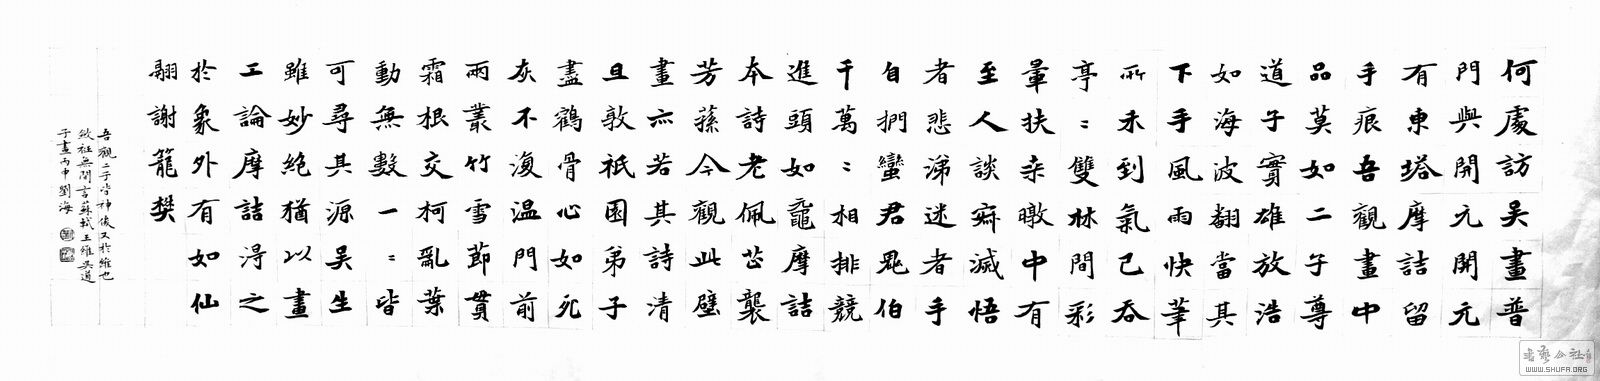 何處訪吳畫普
門與開元開元
有東塔摩詰留
手痕吾觀畫中
品莫如二子尊
道子實雄放浩
如海波翻當其
下手風雨快筆
所未到氣已吞
亭〻雙林間彩
暈扶桒暾中有
至人談寂滅悟
者悲涕迷者手
自捫蠻君鬼伯
千萬〻相排競
進頭如黿摩詰
本詩老佩芷襲
芳蓀今觀此壁
畫亦若其詩清
且敦祇園弟子
盡鶴骨心如死
灰不復溫門前
兩叢竹雪節貫
霜根交柯亂葉
動無數一〻皆
可尋其源吳生
雖妙絕猶以畫
工論摩詰得之
於象外有如仙
翮謝籠樊
吾觀二子皆神俊又於維也
斂衽無間言蘇軾王維吳道
子畫丙申劉海
書藝公社
WWW.SHUFA.ORG